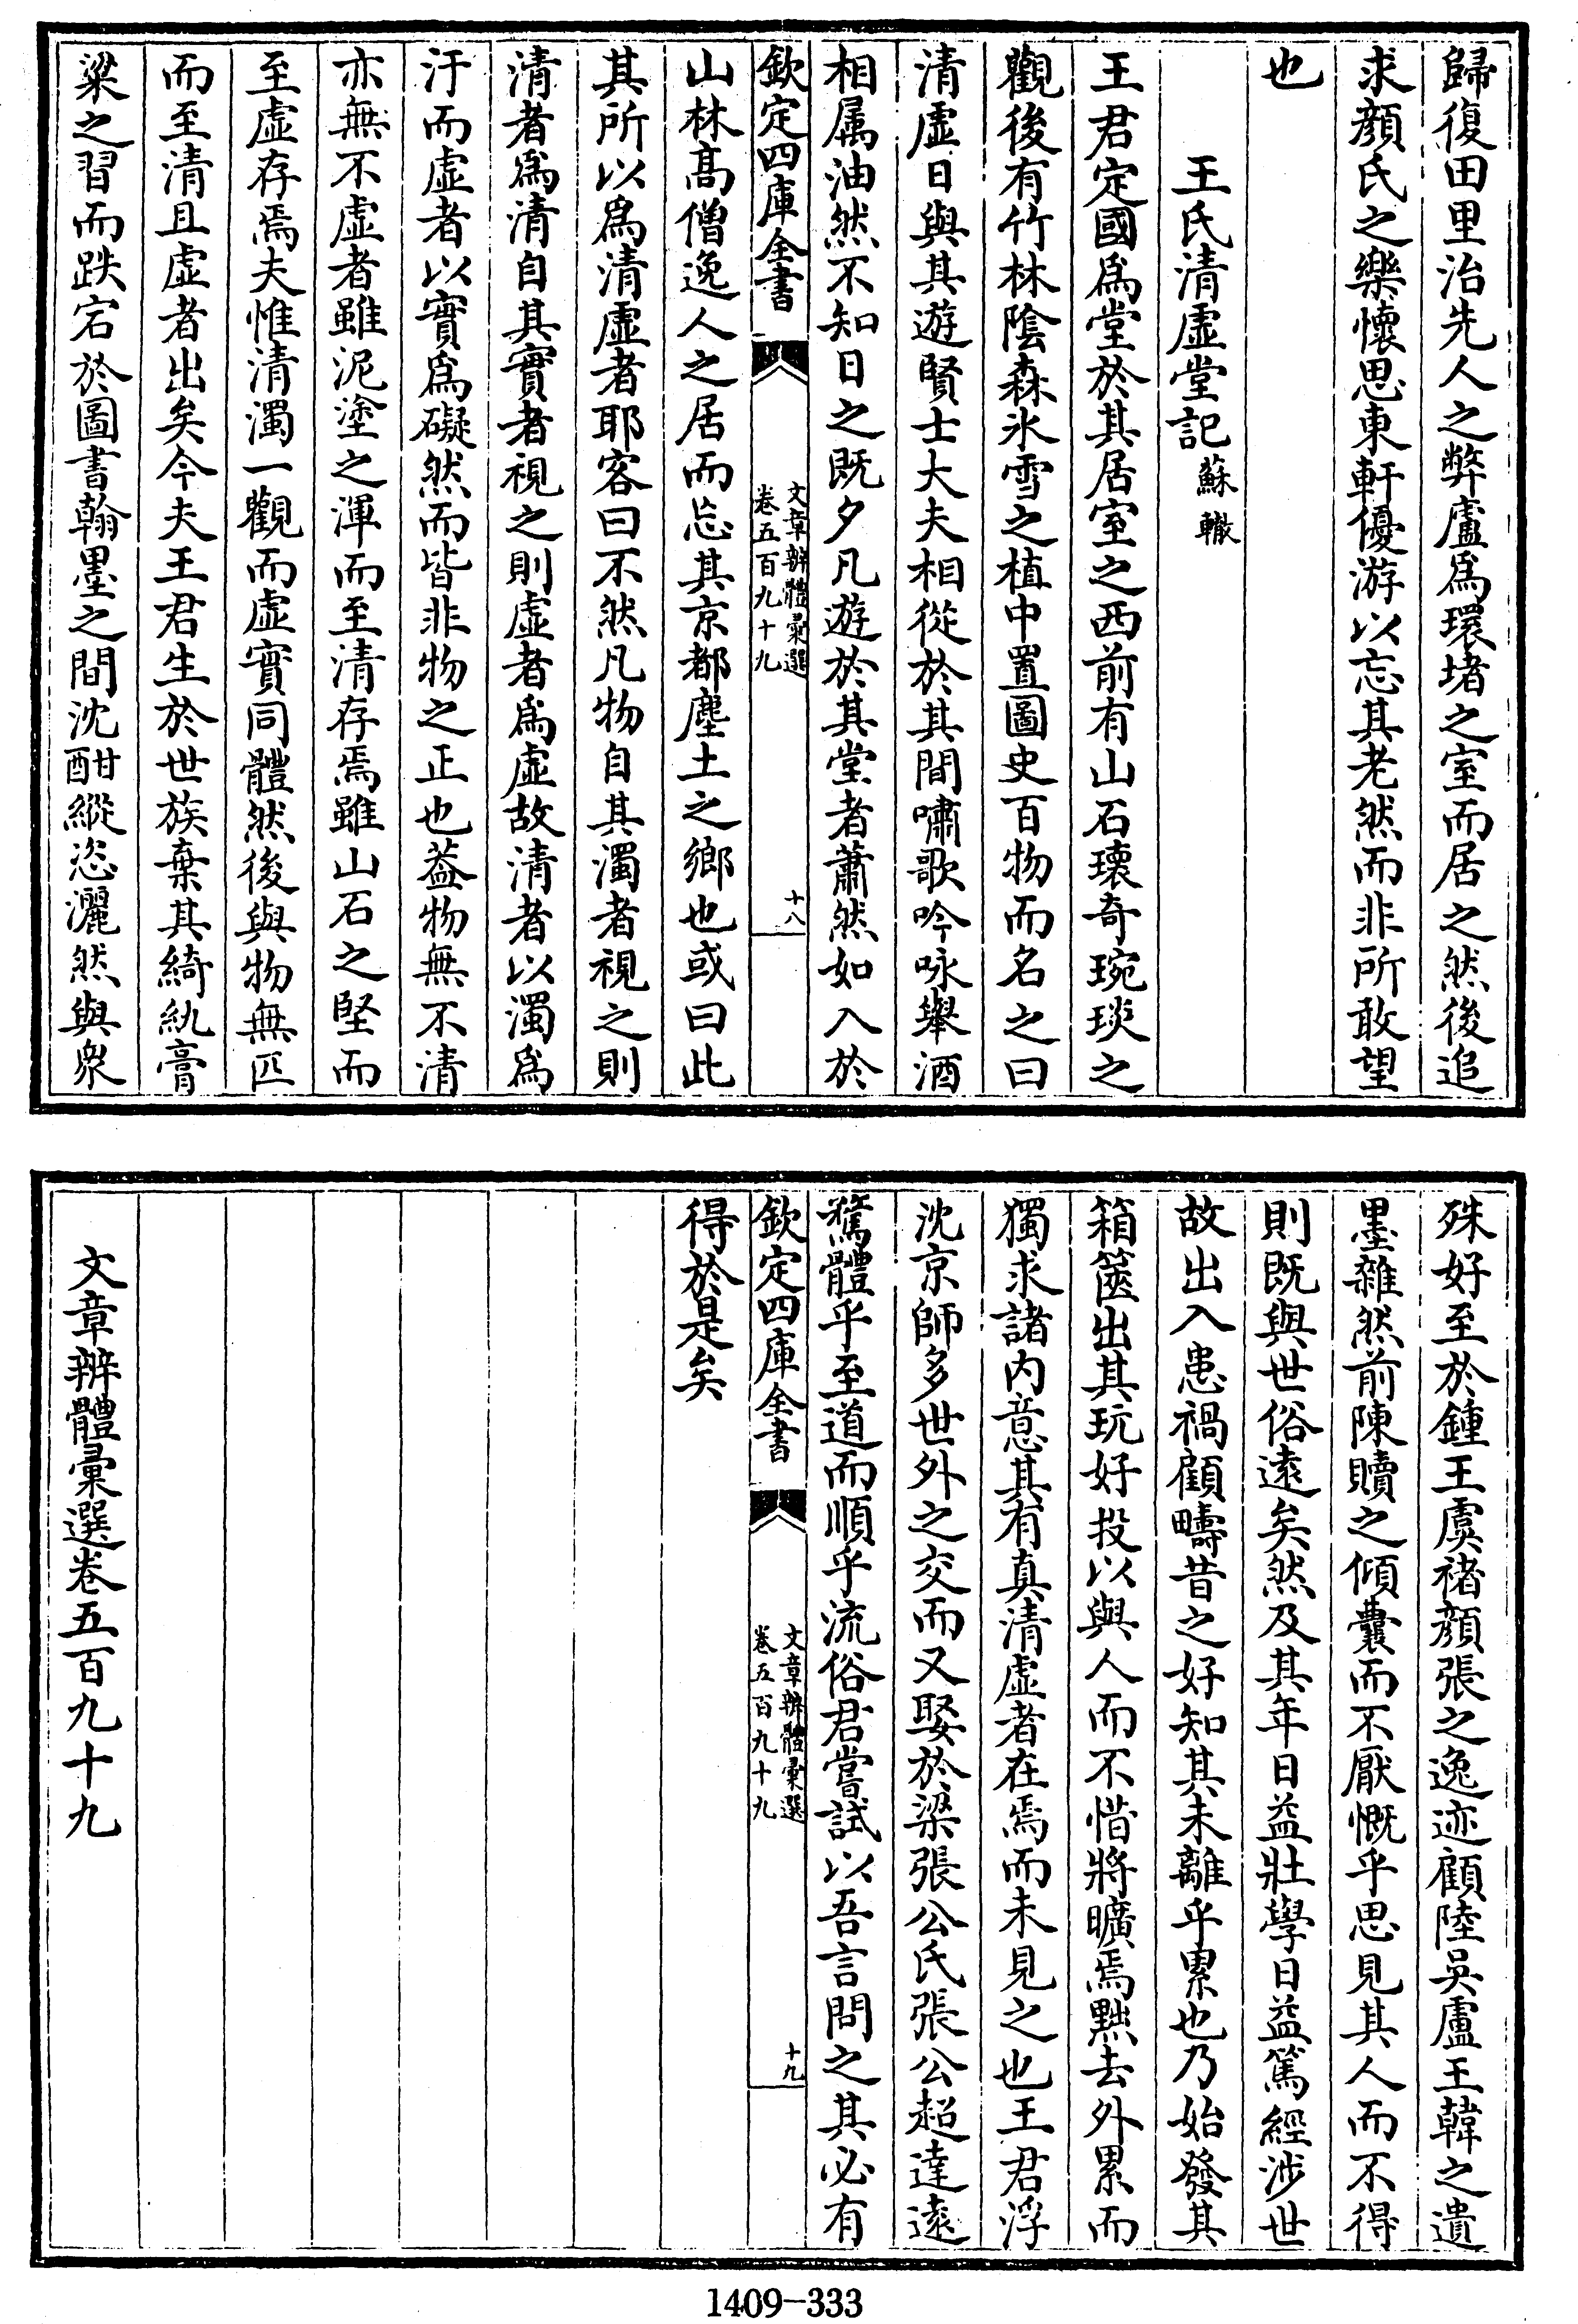 歸復田里治先人之弊廬爲環堵之室而居之然後追
求顔氏之樂懷思東軒優游以忘其老然而非所敢望
也
王氏清虚堂記蘇轍
王君定國爲堂於其居室之西前有山石瓌奇琬琰之
觀後有竹林陰森氷雪之植中置圖史百物而名之曰
清虚日與其遊賢士大夫相從於其間嘯歌吟咏舉酒
相属油然不知日之既夕凡遊於其堂者蕭然如入於
欽定四庫全書
文章辨體彙選
卷五百九十九
十八
山林髙僧逸人之居而忘其京都塵土之鄉也或曰此
其所以爲清虚者耶客曰不然凡物自其濁者視之則
清者爲清自其實者視之則虚者爲虚故清者以濁爲
汙而虚者以實爲礙然而皆非物之正也葢物無不清
亦無不虚者雖泥塗之渾而至清存焉雖山石之堅而
至虚存焉夫惟清濁一觀而虚實同體然後與物無匹
而至清且虚者出矣今夫王君生於世族棄其綺紈膏
粱之習而跌宕於圖書翰墨之間沈酣縱恣灑然與衆
殊好至於鍾王虞禇顔張之逸迹顧陸吳盧王韓之遺
墨雜然前陳贖之傾囊而不厭慨乎思見其人而不得
則既與世俗逺矣然及其年日益壯學日益篤經渉世
故出入患禍顧疇昔之好知其未離乎累也乃始發其
箱篋出其玩好投以與人而不惜將曠焉黜去外累而
獨求諸内意其有真清虚者在焉而未見之也王君浮
沈京師多世外之交而又娶於梁張公氏張公超達逺
騖體乎至道而順乎流俗君嘗試以吾言問之其必有
欽定四庫全書
文章辨體彙選
卷五百九十九
十九
得於是矣
文章辨體彙選卷五百九十九
1409-333